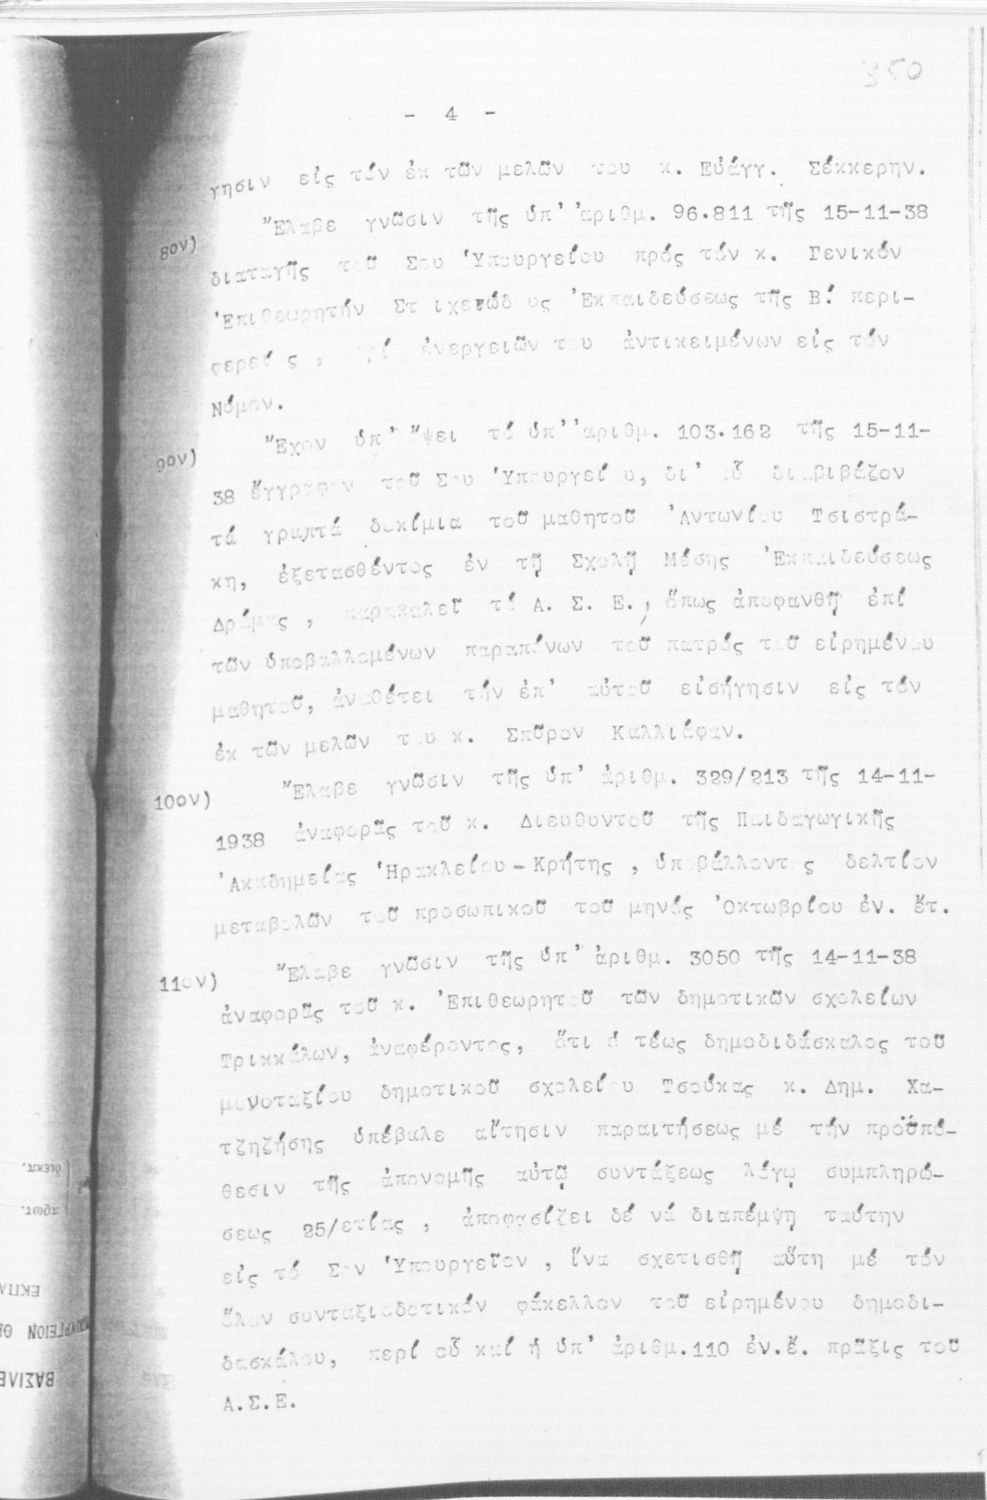 350
- 4 -
γησιν εἰς τόν ἐκ τῶν μελῶν του κ. Εὐάγγ. Σέκκερην.
8ον) Ἔλαβε γνῶσιν τῆς ὑπ' ἀριθμ. 96.811 τῆς 15-11-38
διαταγῆς τοῦ Σου Ὑπουργείου πρός τόν κ. Γενικόν
Ἐπιθεωρητήν Στοιχειώδους Ἐκπαιδεύσεως τῆς Β΄ περι-
φερείας, περί ἐνεργειῶν του ἀντικειμένων εἰς τόν
Νόμον.
9ον) Ἔχον ὑπ' ὄψει τό ὑπ' ἀριθμ. 103.162 τῆς 15-11-
38 ἔγγραφον τοῦ Σου Ὑπουργείου, δι' οὗ διαβιβάζον
τά γραπτά δοκίμια τοῦ μαθητοῦ Ἀντωνίου Τσιστρά-
κη, ἐξετασθέντος ἐν τῇ Σχολῇ Μέσης Ἐκπαιδεύσεως
Δράμας, παρακαλεῖ τό Α. Σ. Ε., ὅπως ἀποφανθῇ ἐπί
τῶν ὑποβαλλομένων παραπόνων τοῦ πατρός τοῦ εἰρημένου
μαθητοῦ, ἀναθέτει τήν ἐπ' αὐτοῦ εἰσήγησιν εἰς τόν
ἐκ τῶν μελῶν του κ. Σπῦρον Καλλιάφαν.
10ον) Ἔλαβε γνῶσιν τῆς ὑπ' ἀριθμ. 329/213 τῆς 14-11-
1938 ἀναφορᾶς τοῦ κ. Διευθυντοῦ τῆς Παιδαγωγικῆς
Ἀκαδημείας Ἡρακλείου-Κρήτης, ὑποβάλλοντος δελτίον
μεταβολῶν τοῦ προσωπικοῦ τοῦ μηνός Ὀκτωβρίου ἐν. ἔτ.
11ον) Ἔλαβε γνῶσιν τῆς ὑπ' ἀριθμ. 3050 τῆς 14-11-38
ἀναφορᾶς τοῦ κ. Ἐπιθεωρητοῦ τῶν δημοτικῶν σχολείων
Τρικκάλων, ἀναφέροντος, ὅτι ὁ τέως δημοδιδάσκαλος τοῦ
μονοταξίου δημοτικοῦ σχολείου Τσούκας κ. Δημ. Χα-
τζηζήσης ὑπέβαλε αἴτησιν παραιτήσεως μέ τήν προϋπό-
θεσιν τῆς ἀπονομῆς αὐτῷ συντάξεως λόγῳ συμπληρώ-
σεως 25/ετίας, ἀποφασίζει δέ νά διαπέμψῃ ταύτην
εἰς τό Σον Ὑπουργεῖον, ἵνα σχετισθῇ αὕτη μέ τόν
ὅλον συνταξιοδοτικόν φάκελλον τοῦ εἰρημένου δημοδι-
δασκάλου, περί οὗ καί ἡ ὑπ' ἀριθμ.110 ἐν.ἔ. πρᾶξις τοῦ
Α.Σ.Ε.